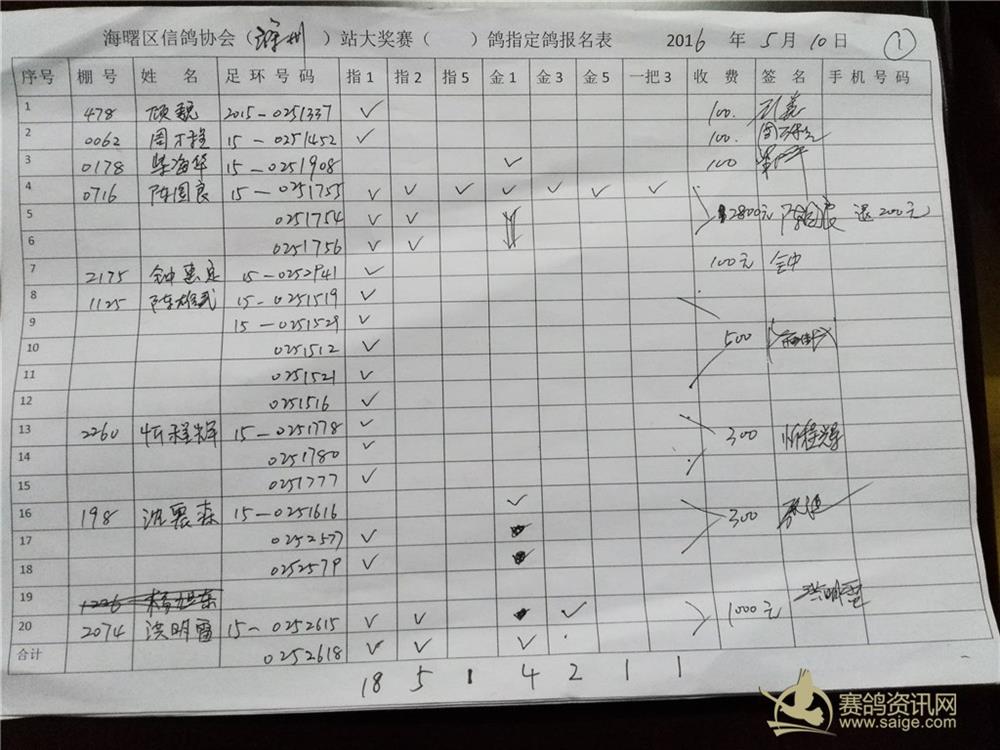 海曙区信鸽协会（滁州）站大奖赛（ ）鸽指定鸽报名表 2016 年 5 月 10 日 ①
序号 棚号 姓名 足环号码 指1 指2 指5 金1 金3 金5 一把3 收费 签名 手机号码
1 478 顾魏 2015-0251337 ✓ 100.
2 0062 周 15-0251452 ✓ 100.
3 0178 柴海华 15-0251908 ✓ 100
4 0716 陈国良 15-0251755 ✓ ✓ ✓ ✓ ✓ ✓ ✓
5 0251754 ✓ ✓ 2800元 陈国良 退200元
6 0251756 ✓ ✓
7 2175 钟惠定 15-0252941 ✓ 100元 钟
8 1125 陈雄武 15-0251519 ✓
9 15-0251529 ✓
10 0251512 ✓ 500
11 0251521 ✓
12 0251516 ✓
13 2260 忻程辉 15-0251778 ✓ 300 忻程辉
14 0251780 ✓
15 0251777 ✓
16 198 沈 森 15-0251616 ✓ 300
17 0252577 ✓
18 0252579 ✓
19 1226
20 2074 洪明雷 15-0252615 ✓ ✓ ✓ 1000元 洪明雷
合计 0252618 ✓ ✓ ✓
18 5 1 4 2 1 1
赛鸽资讯网
www.saige.com